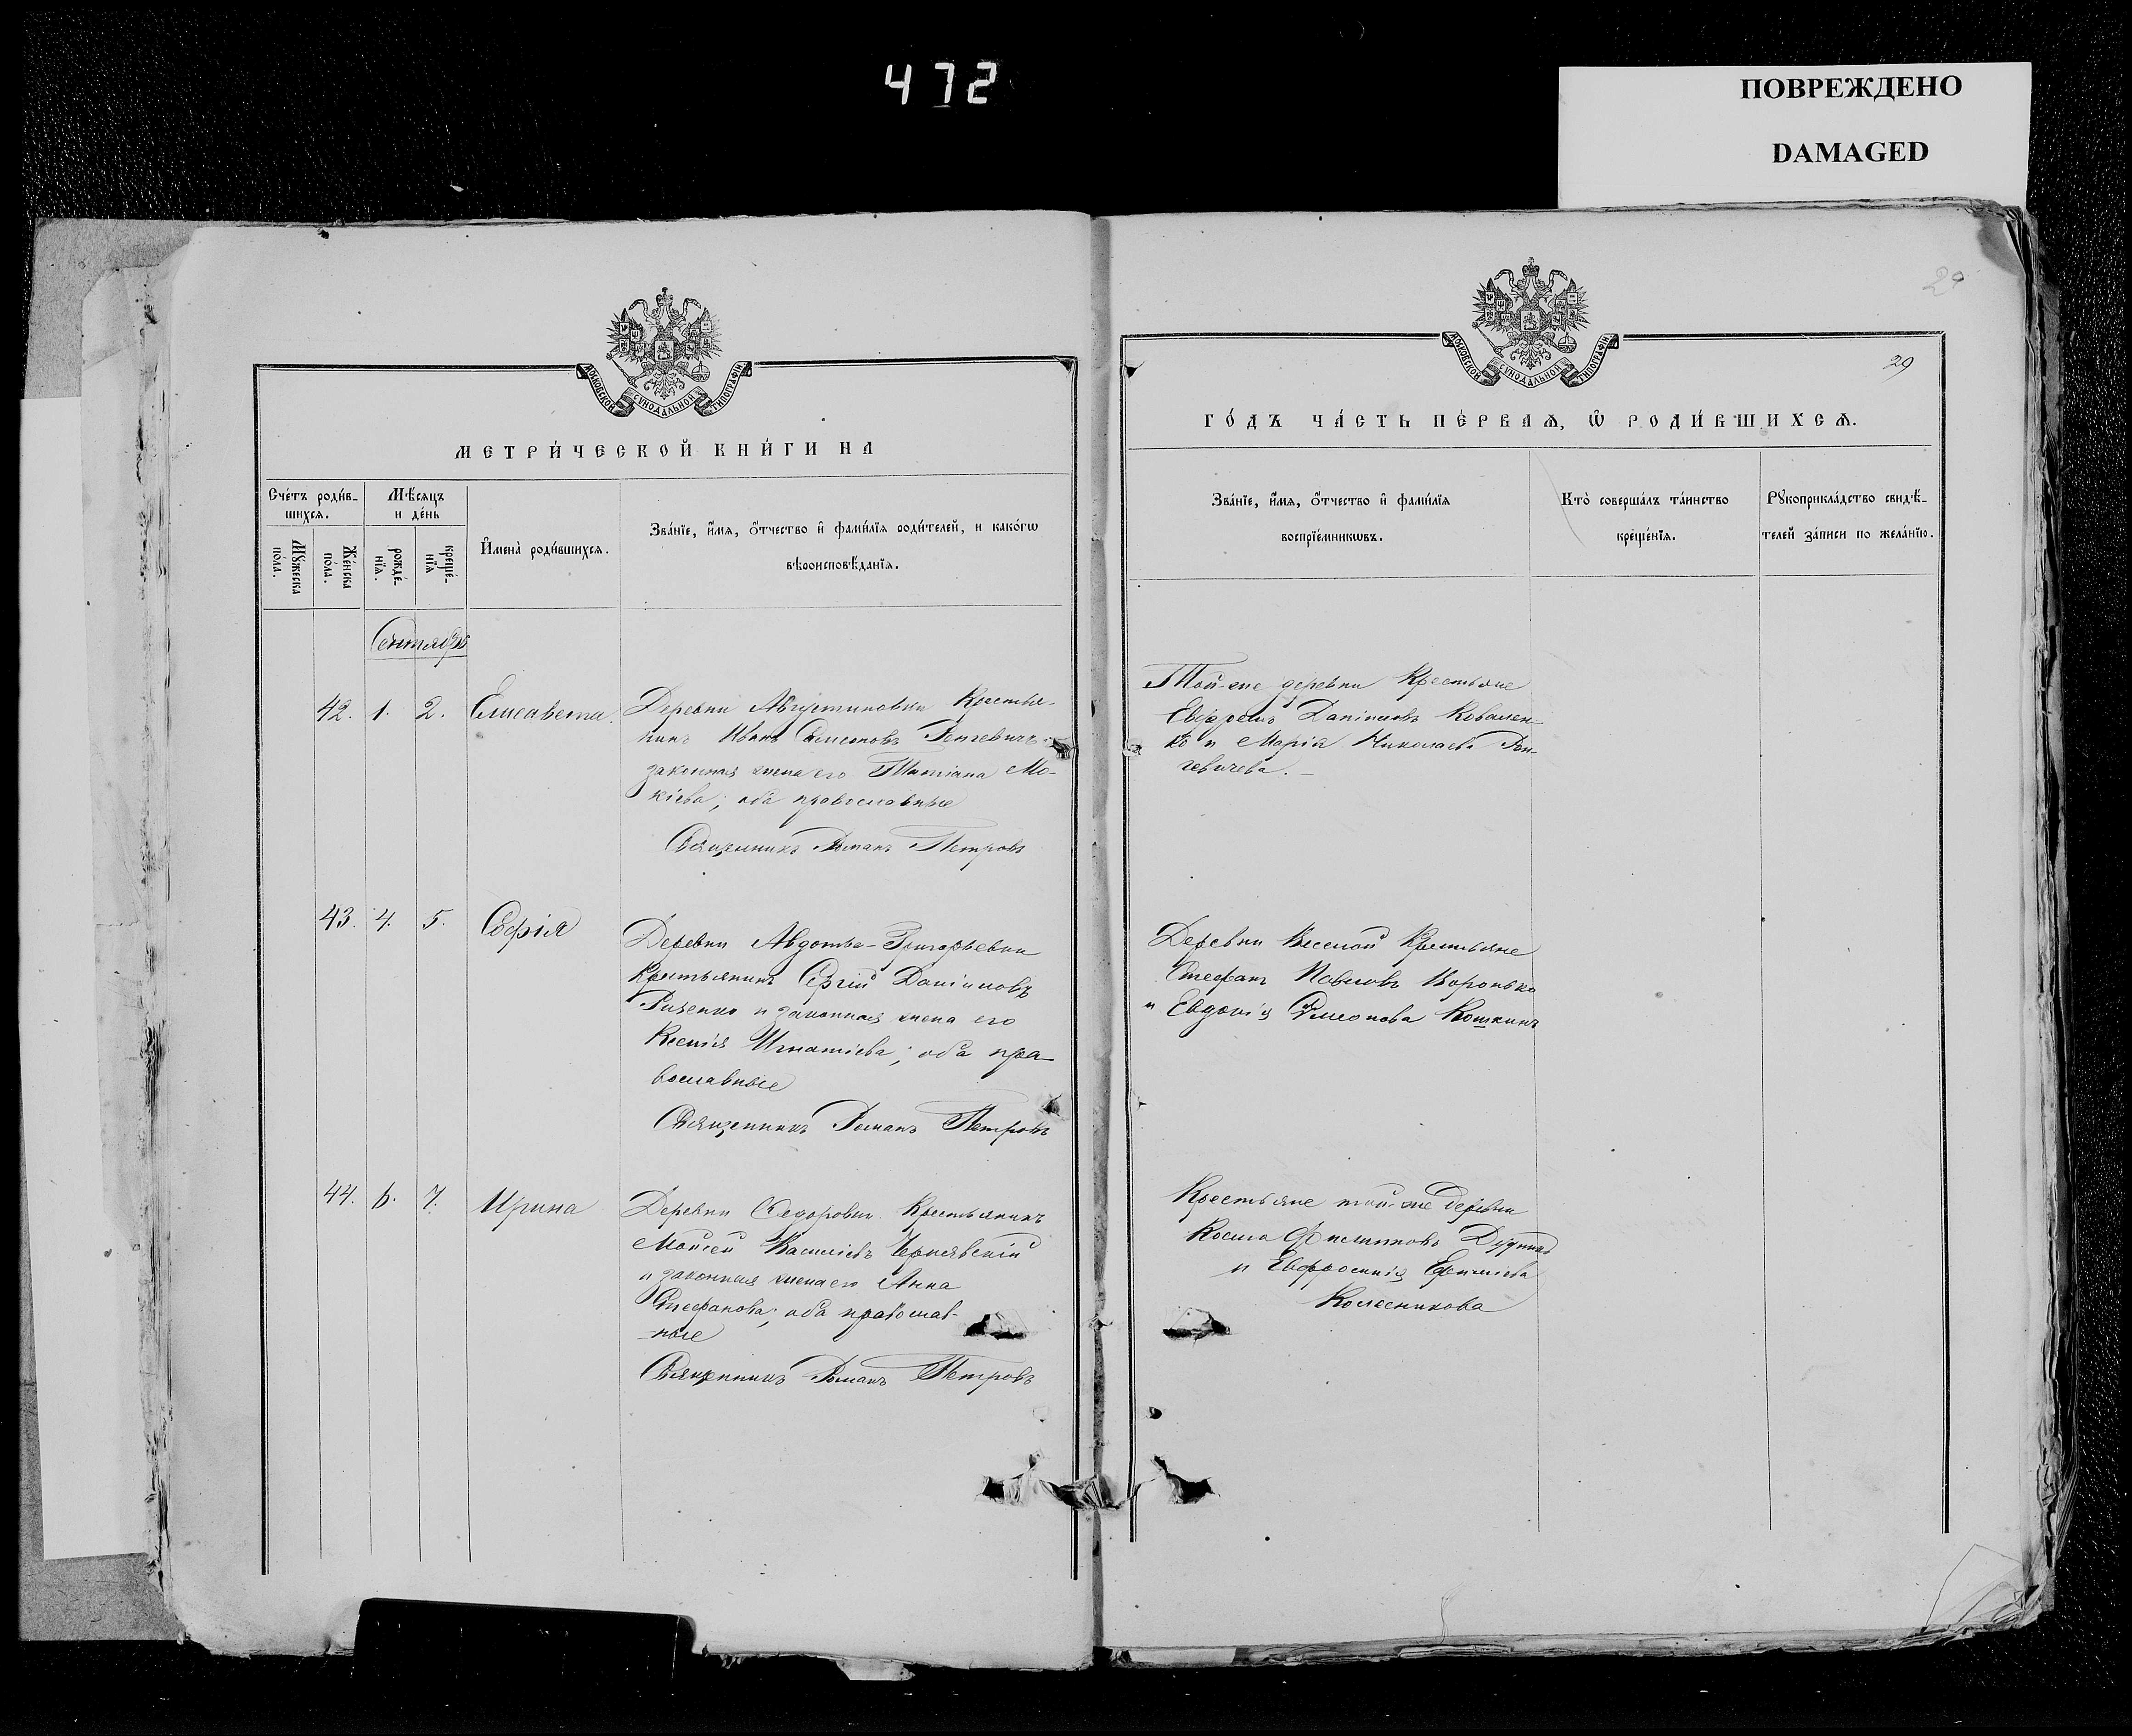 472
ПОВРЕЖДЕНО
DAMAGED
МОСКОВСКОЙ СѴНОДАЛЬНОЙ ТИПОГРАФІИ
МЕТРИ́ЧЕСКОЙ КНИ́ГИ НА
Сче́тъ роди́в-
шихсѧ.
Мѣ́сѧцъ
и де́нь
Мꙋ́жеска
по́ла.
Же́нска
по́ла.
рожде́-
нїѧ.
креще́-
нїѧ
И҆мена̀ роди́вшихсѧ.
Зва́нїе, и҆́мѧ, ѻ҆́тчество и҆ фами́лїѧ роди́телей, и како́гѡ
вѣроисповѣ́данїѧ.
Сентябрь
42. 1. 2. Елисавета.
Деревни Августиновки Крестья-
нинъ Иванъ Симеоновъ
законная жена его Татіана Мо-
кіева; оба православные
Священникъ Романъ Петровъ
43. 4. 5. Софія
Деревни Авдотье-Григорьевки
Крестьянинъ Сергій Даніиловъ
и законная жена его
Ксенія Игнатіева; оба пра-
вославные
Священникъ Романъ Петровъ
44. 6. 7. Ирина
Деревни Федоровки Крестьянинъ
Моисей Василіевъ Чернявскій
и законная жена его Анна
Стефанова; оба православ-
-ные
Священникъ Романъ Петровъ
29
МОСКОВСКОЙ СѴНОДАЛЬНОЙ ТИПОГРАФІИ
29
ГО́ДЪ ЧА́СТЬ ПЕ́РВАѦ, Ѡ҆ РОДИ́ВШИХСѦ.
Зва́нїе, и҆́мѧ, ѻ҆́тчество и҆ фами́лїѧ
воспрїе́мникѡвъ.
Кто̀ соверша́лъ та́инство
креще́нїѧ.
Рꙋкоприкла́дство свидѣ́-
телей за́писи по жела́нїю.
Той-же деревни Крестьяне
Ефремъ Даніиловъ Ковален-
ко и Марія Николаева
Деревни Веселой Крестьяне
Стефанъ Павловъ Воронько
и Евдокія Симеонова Кошкинъ
Крестьяне той-же деревни
Косма Филипповъ
и Евфросинія Ефиміева
Колесникова